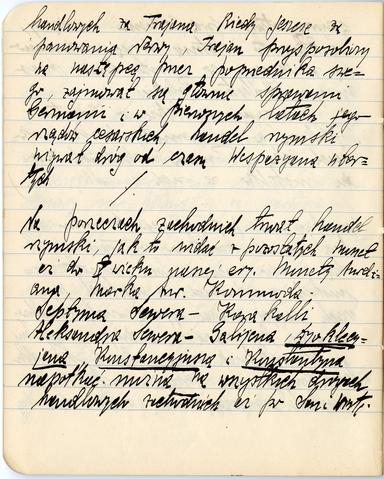 handlowych za Trajana. Kiedy jeszcze za
panowania Nerwy, Trajan przysposobiony
na następcę przez poprzednika swe-
go, zajmował się głównie sprawami
Germanii i w pierwszych latach jego
rządów cesarskich, handel rzymski
używał dróg od czasu Wespazjana utar-
tych
Na porzeczach zachodnich trwał handel
rzymski, jak to widać z pozostałych monet
aż do V wieku naszej ery. Monety
Marka Kommoda -
Septyma Sewera - Karakalli
Aleksandra Sewera - Galijena Dyoklecy-
jena Konstancyjusza i Konstantyna
napotkać można na wszystkich drogach
handlowych zachodnich aż po San i